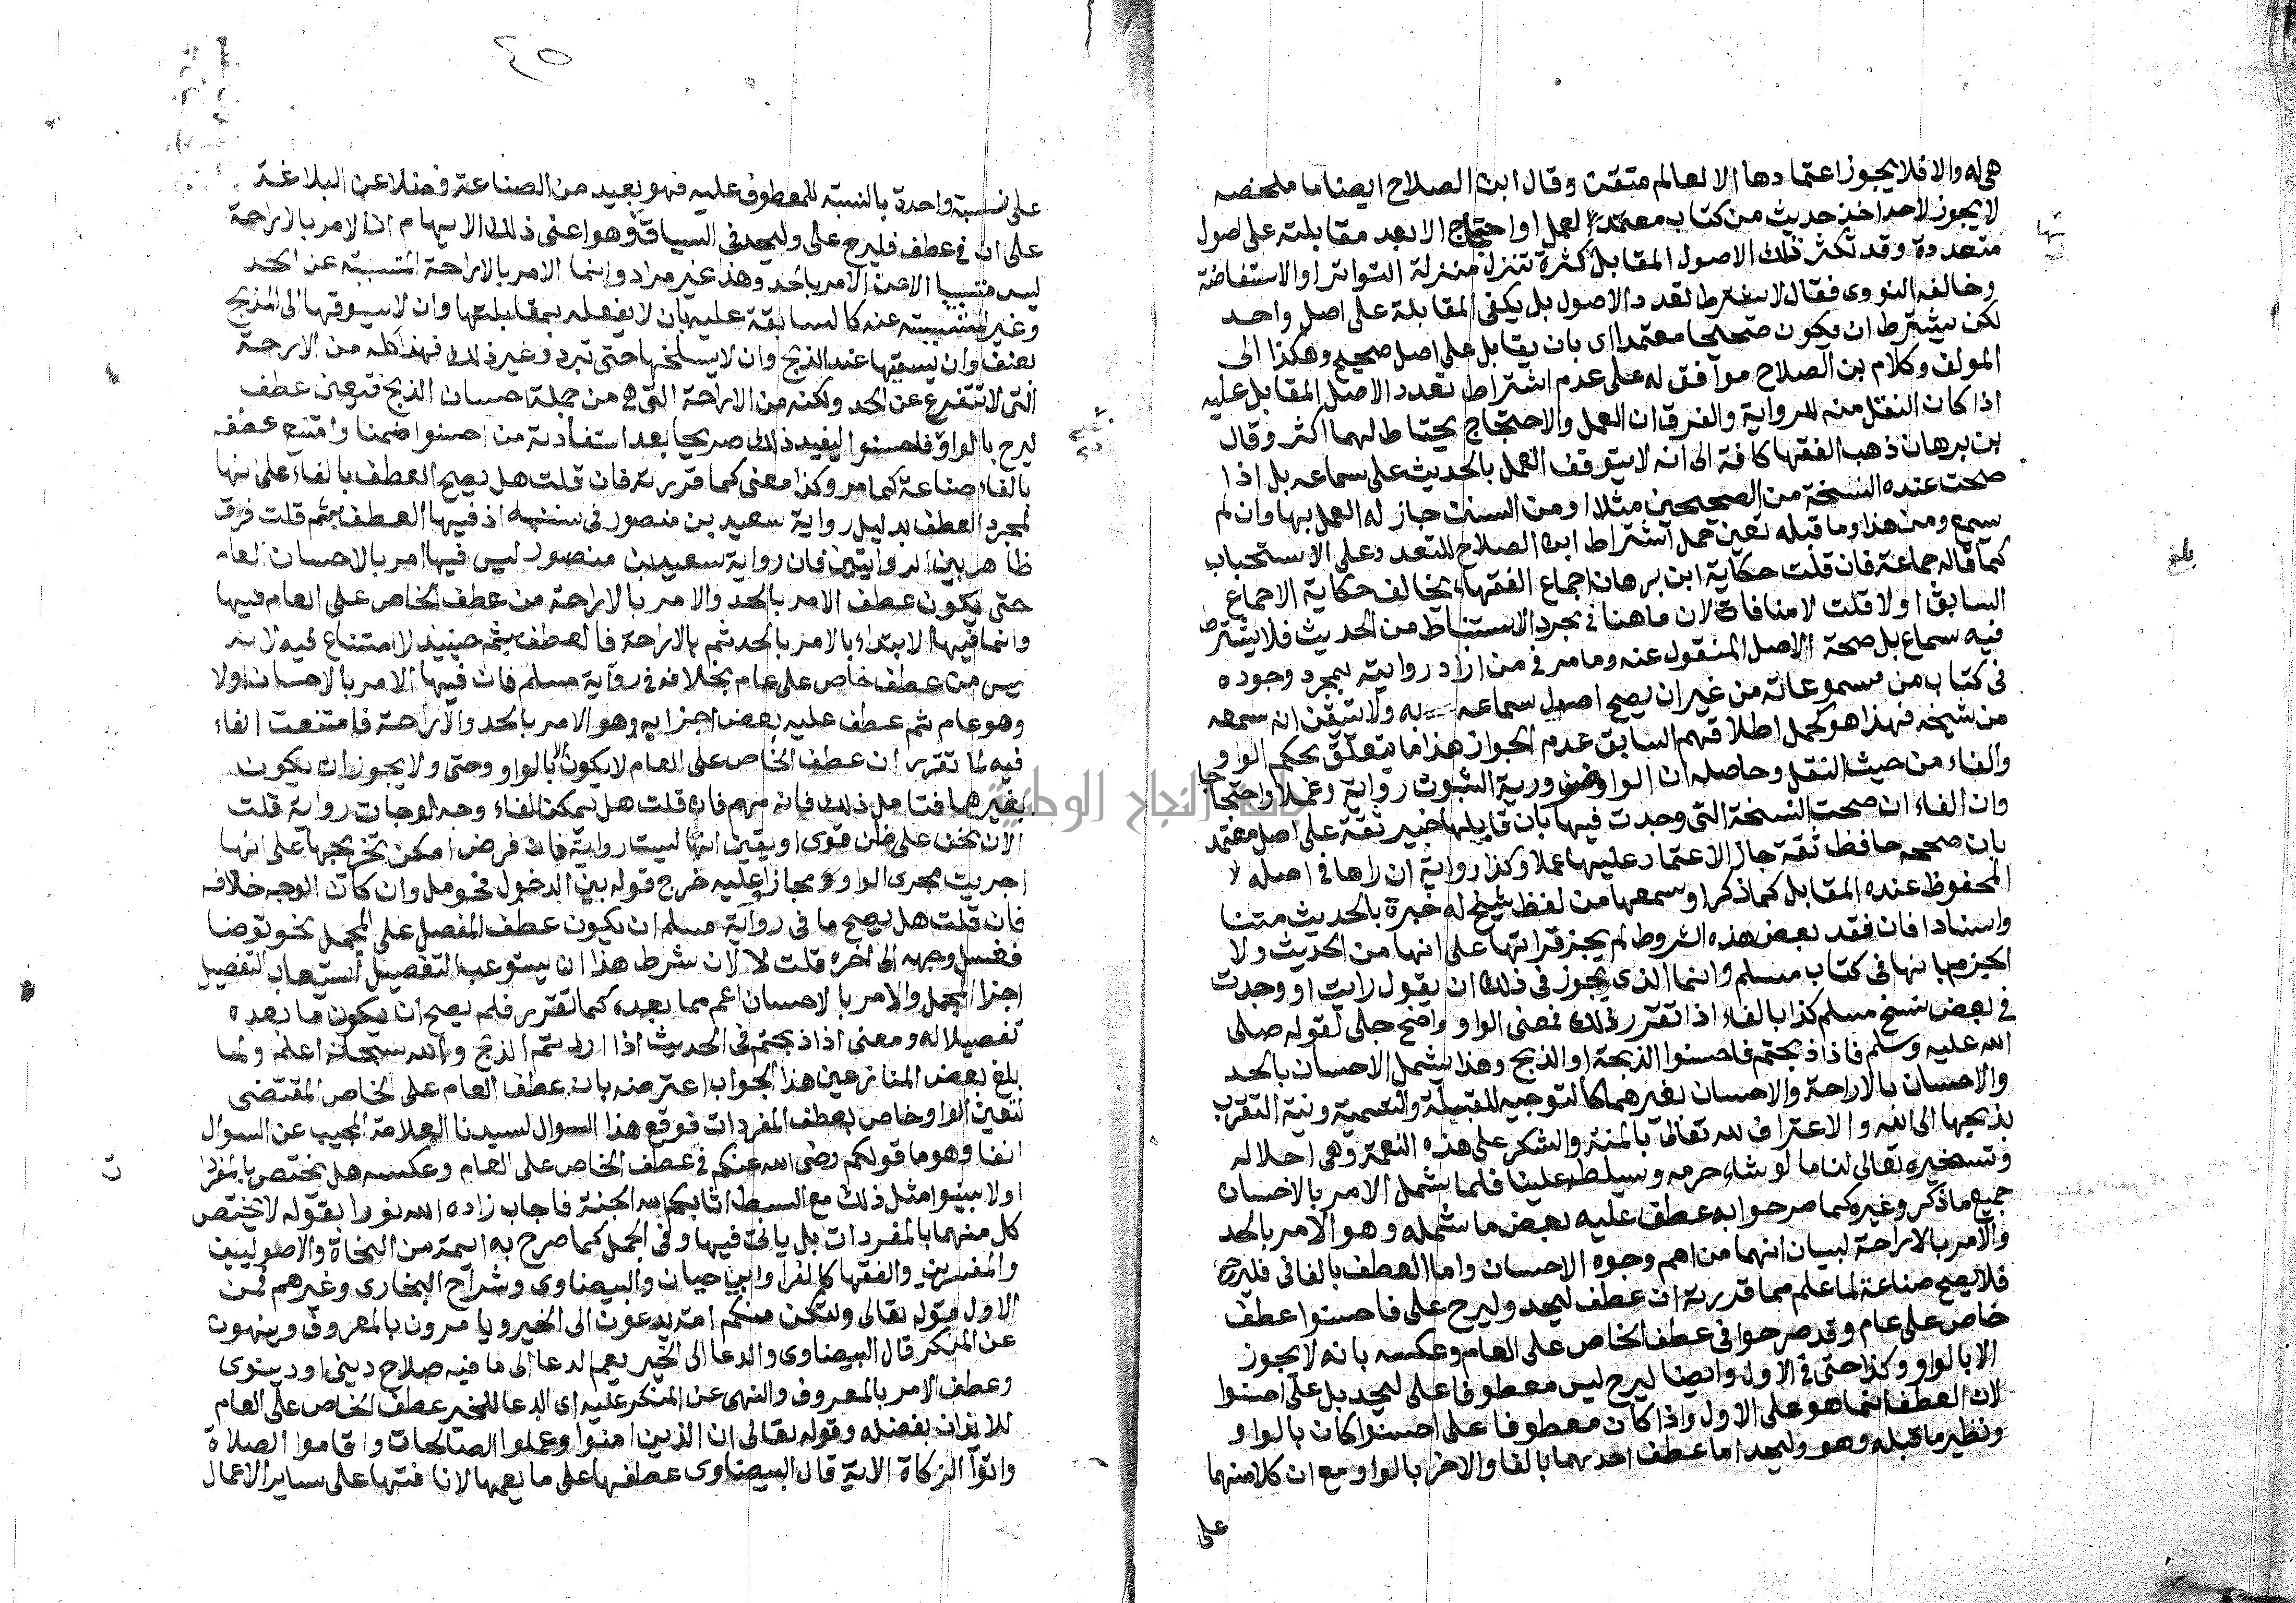 هي له والا فلا يجوز اعتمادها الا لعالم متقن وقال ابن الصلاح ايضا ما ملخصه
لا يجوز لاحد اخذ حديث من كتاب معتمد لعمل او احتجاج الا بعد مقابلته على اصول
متعددة وقد تكثر تلك الاصول المقابل كثرة تتنزل منزلة التواتر او الاستفاضة
وخالفه النووي فقال لا يشترط تعدد الاصول بل يكفي المقابلة على اصل واحد
لكن يشترط ان يكون صحيحا معتمدا اي بان يقابل على اصل صحيح وهكذا الى
المولف وكلام بن الصلاح موافق له على عدم اشتراط تعدد الاصل المقابل عليه
اذا كان النقل منه للرواية والفرق ان العمل والاحتجاج يحتاط لهما اكثر وقال
بن برهان ذهب الفقها كافة الى انه لا يتوقف العمل بالحديث على سماعه بل اذا
صحت عنده النسخة من الصحيحين مثلا او من السنن جاز له العمل بها وان لم
يسمع ومن هذا وما قبله تعين حمل اشتراط ابن الصلاح للتعدد على الاستحباب
كما قاله جماعة فان قلت حكاية ابن برهان اجماع الفقهاء يخالف حكاية الاجماع
السابق اولا قلت لا منافاة لان ما هنا في مجرد الاستنباط من الحديث فلا يشترط
فيه سماع بل صحة الاصل المنقول عنه وما مر في من اراد رواية بمجرد وجوده
في كتاب من مسموعاته من غير ان يصح اصل سماعه به ولا تيقن انه سمعه
من شيخه فهذا هو محمل اطلاقهم السابق عدم الجواز هذا ما يتعلق بحكم الواو
والفاء من حيث النقل وحاصله ان الواو ضرورية الثبوت رواية وعملا واحتجاجا
وان الفاء ان صحت النسخة التي وجدت فيها بان قابلها خبير ثقة على اصل معتمد
بان صححه حافظ ثقة جاز الاعتماد عليها عملا وكذا رواية ان راها في اصله لا
المحفوظ عنده المقابل كما ذكر او سمعها من لفظ شيخ له خبرة بالحديث متنا
واسنادا فان فقد بعض هذه الشروط لم يجز قرائتها على انها من الحديث ولا
الجزم بانها في كتاب مسلم وانما الذي يجوز في ذلك ان يقول رايت او وجدت
في بعض نسخ مسلم كذا بالفاء اذا تقرر ذلك فمعنى الواو واضح جلي لقوله صلى
الله عليه وسلم فاذا ذبحتم فاحسنوا الذبحة او الذبح وهذا يشمل الاحسان بالحد
والاحسان بالاراحة والاحسان بغيرهما كالتوجيه للقبلة والتسمية ونية التقرب
بذبحها الى الله والاعتراف لله تعالى بالمنة والشكر على هذه النعمة وهي احلاله
وتسخيره تعالى لنا ما لو شاء حرمه وسلطه علينا فلما شمل الامر بالاحسان
جميع ما ذكر وغيره كما صرحوا به عطف عليه بعض ما شمله وهو الامر بالحد
والامر بالاراحة لبيان انهما من اهم وجوه الاحسان واما العطف بالفا في فليرح
فلا يصح صناعة لما علم مما قدرته ان عطف ليحد وليرح على فاحسنوا عطف
خاص على عام وقد صرحوا في عطف الخاص على العام وعكسه بانه لا يجوز
الا بالواو وكذا حتى في الاول وايضا ليرح ليس معطوفا على ليحد بل على احسنوا
لان العطف انما هو على الاول واذا كان معطوفا على احسنوا كان بالواو
ونظير ما قبله وهو وليحد اما عطف احدهما بالفا والاخر بالواو مع ان كلا منهما
على
٤٥
على نسبة واحدة بالنسبة للمعطوف عليه فهو بعيد من الصناعة وفضلا عن البلاغة
على ان في عطف فليرح على وليحد في السياق وهو اعني ذلك الايهام ان الامر بالاراحة
ليس متسببا الا عن الامر بالحد وهذا غير مراد وانما الامر بالاراحة المتسببة عن الحد
وغير المتسببة عنه كالسابقة عليه بان لا يفعله بمقابلتها وان لا يسوقها الى المذبح
بعنف وان يسقيها عند الذبح وان لا يسلخها حتى تبرد وغير ذلك فهذا كله من الاراحة
التي لا تتفرع عن الحد ولكنه من الاراحة التي هي من جملة احسان الذبح فتعين عطف
ليرح بالواو فاحسنوا ليفيد ذلك صريحا بعد استفادته من احسنوا ضمنا وامتنع عطف
بالفاء صناعة كما مر وكذا معنى كما قررته فان قلت هل يصح العطف بالفاء على انها
لمجرد العطف بدليل رواية سعيد بن منصور في سننه اذ فيها العطف بثم قلت فرق
ظاهر بين الروايتين فان رواية سعيد بن منصور ليس فيها امر بالاحسان العام
حتى يكون عطف الامر بالحد والامر بالاراحة من عطف الخاص على العام فيها
وانما فيها الابتداء بالامر بالحد ثم بالاراحة فالعطف بثم حينيذ لا امتناع فيه لانه
ليس من عطف خاص على عام بخلافه في رواية مسلم فان فيها الامر بالاحسان اولا
وهو عام ثم عطف عليه بعض اجزايه وهو الامر بالحد والاراحة فامتنعت الفاء
فيه لما تقرر ان عطف الخاص على العام لا يكون الا بالواو وحتى ولا يجوز ان يكون
بغيرهما فتامل ذلك فانه مهم فان قلت هل يمكن للفاء وجه لو جات رواية قلت
الان نحن على ظن قوي او يقين انها ليست رواية فان فرض امكن تخريجها على انها
اجريت مجرى الواو مجازا وعليه خرج قوله بين الدخول فحومل وان كان الوجه خلافه
فان قلت هل يصح ما في رواية مسلم ان يكون عطف المفصل على المجمل نحو توضا
فغسل وجهه الى اخره قلت لا لان شرط هذا ان يستوعب التفصيل استيعاب التفصيل
اجزا المجمل والامر بالاحسان اعم مما بعده كما تقرر فلم يصح ان يكون ما بعده
تفصيلا له ومعنى اذا ذبحتم في الحديث اذا اردتم الذبح والله سبحانه اعلم ولما
بلغ بعض المنازعين هذا الجواب اعترضه بان عطف العام على الخاص المقتضى
لتعين الواو خاص بعطف المفردات فوقع هذا السوال لسيدنا العلامة المجيب عن السوال
انفا وهو ما قولكم رضي الله عنكم في عطف الخاص على العام وعكسه هل يختص بالمفردا
اولا بينوا مثل ذلك مع البسط اثابكم الله الجنة فاجاب زاده الله نورا بقوله لا يختص
كل منهما بالمفردات بل ياتي فيها وفي الجمل كما صرح به ايمة من النحاة والاصوليين
والمفسرين والفقها كالفرا وابن حيان والبيضاوي وشراح البخاري وغيرهم فمن
الاول قوله تعالى ولتكن منكم امة يدعون الى الخير ويامرون بالمعروف وينهون
عن المنكر قال البيضاوي والدعا الى الخير يعم الدعا الى ما فيه صلاح ديني او دينوي
وعطف الامر بالمعروف والنهي عن المنكر عليه اي الدعا للخير عطف الخاص على العام
للايذان بفضله وقوله تعالى ان الذين امنوا وعملوا الصالحات واقاموا الصلاة
واتوا الزكاة الاية قال البيضاوي عطفها على ما يعمها لانافتها على ساير الاعمال
بلغ
جامعة النجاح الوطنية